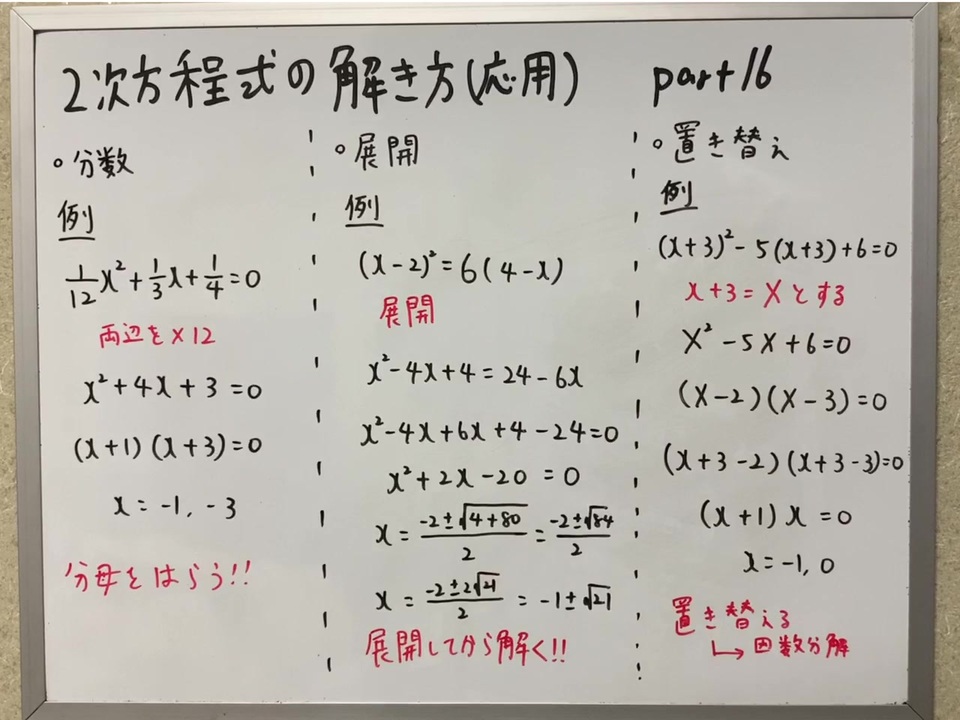 2次方程式の解き方(応用) part16
○分数
例
1/12x²+1/3x+1/4=0
両辺を×12
x²+4x+3=0
(x+1)(x+3)=0
x=-1,-3
分母をはらう!!
○展開
例
(x-2)²=6(4-x)
展開
x²-4x+4=24-6x
x²-4x+6x+4-24=0
x²+2x-20=0
x=(-2±√(4+80))/2=(-2±√84)/2
x=(-2±2√21)/2=-1±√21
展開してから解く!!
○置き替え
例
(x+3)²-5(x+3)+6=0
x+3=Xとする
X²-5X+6=0
(X-2)(X-3)=0
(x+3-2)(x+3-3)=0
(x+1)x=0
x=-1,0
置き替える
↳因数分解